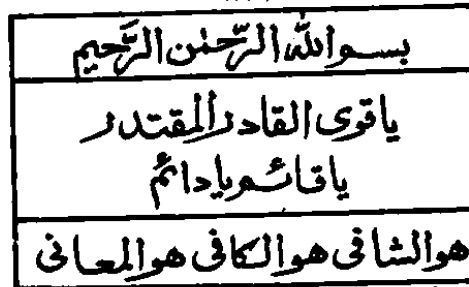 بسم الله الرحمن الرحيم
ياقوى القادر المقتدر
ياقائم يادائم
هوالشافى هوالكافى هوالمعافى